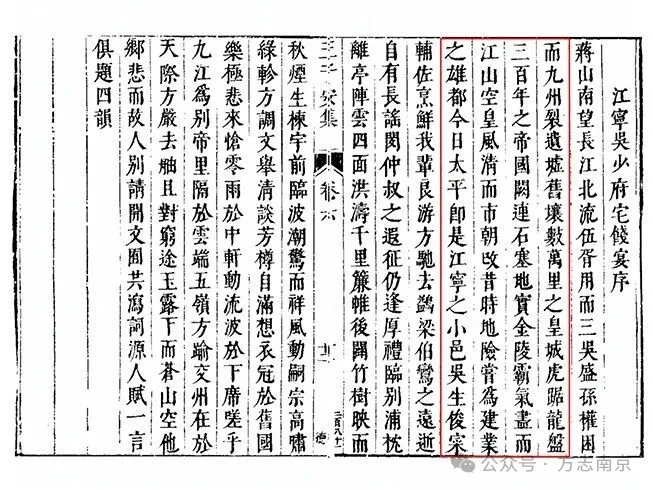 江寧吳少府宅餞宴序
蔣山南望長江北流伍胥用而三吳盛孫權困
而九州裂遺墟舊壤數萬里之皇城虎踞龍盤
三百年之帝國闕連石塞地實金陵霸氣盡而
江山空皇風清而市朝改昔時地險嘗爲建業
之雄都今日太平卽是江寧之小邑吳生俊寀
輔佐烹鮮我輩良游方馳去鷁梁伯鸞之遠逝
自有長謠閔仲叔之遐征仍逢厚禮臨別浦枕
離亭陣雲四面洪濤千里簾帷後闢竹樹映而
王子安集
卷六
秋煙生棟宇前臨波潮驚而祥風動嗣宗高嘯
綠軫方調文舉清談芳樽自滿想衣冠於舊國
樂極悲來愴零雨於中軒動流波於下席嗟乎
九江爲別帝里隔於雲端五嶺方踰交州在於
天際方嚴去舳且對窮途玉露下而蒼山空他
鄉悲而故人別請開文囿共瀉詞源人賦一言
俱題四韻
公众号 · 方志南京